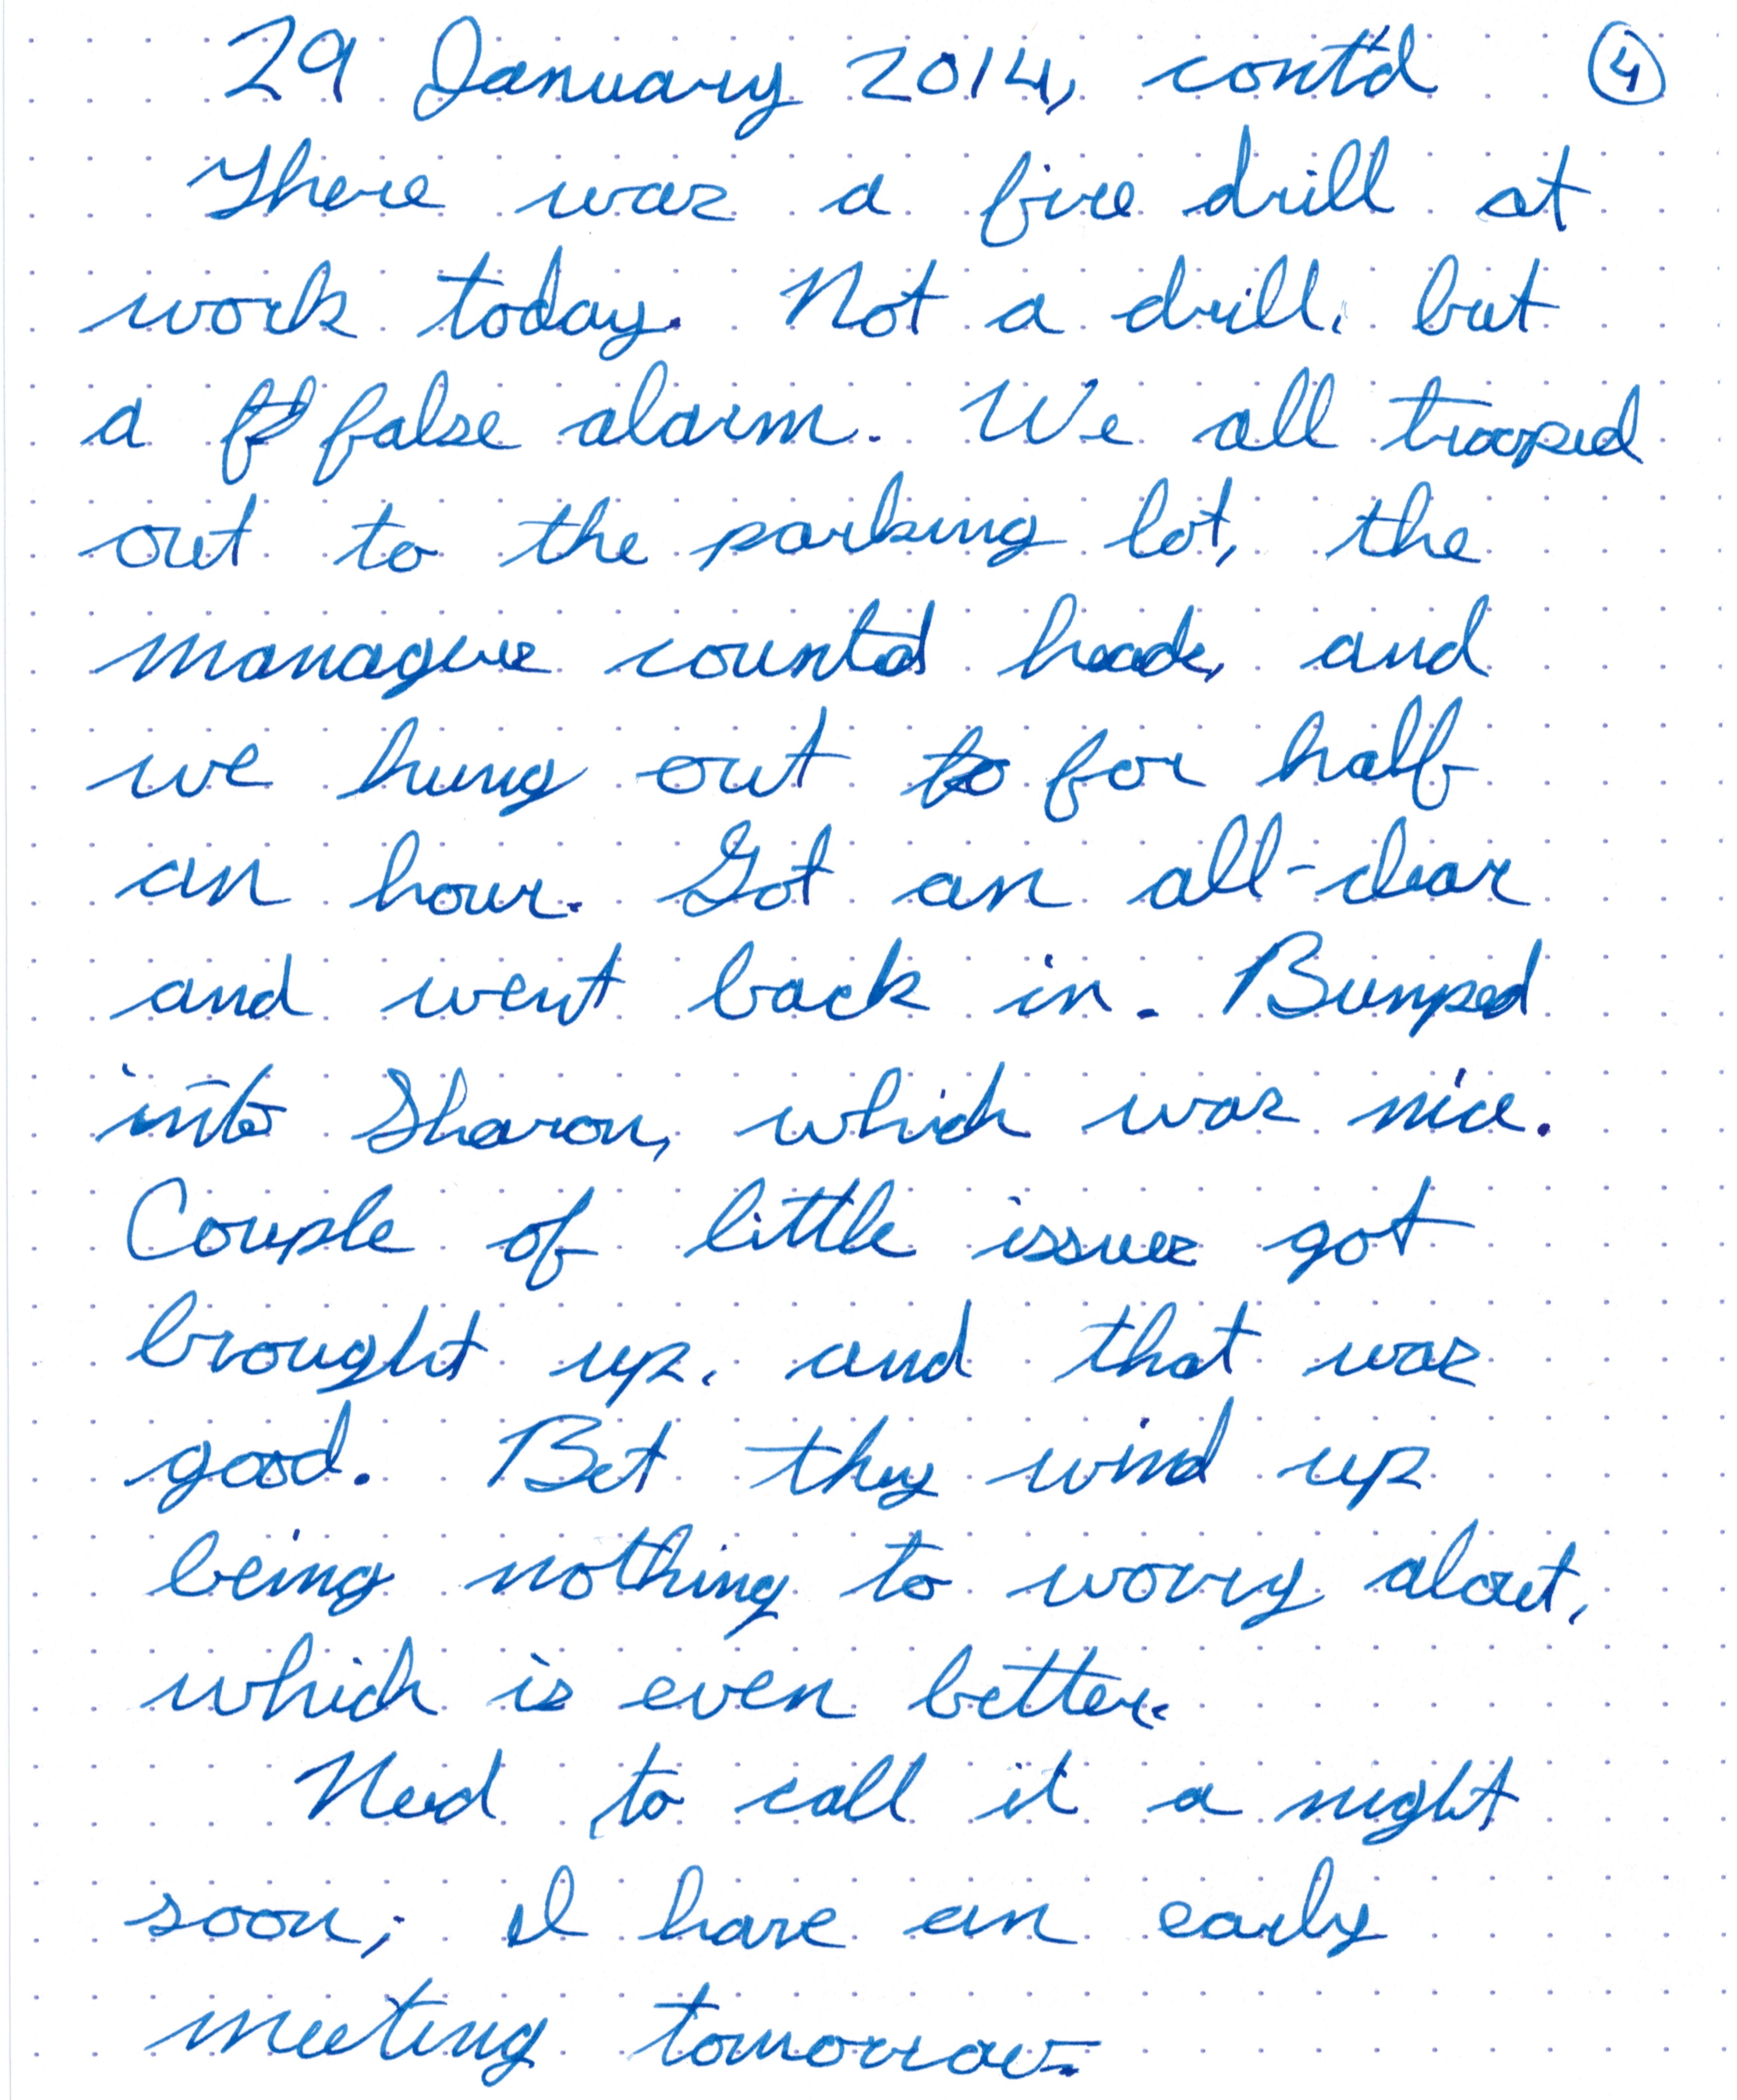 29 January 2014, cont'd ④
There was a fire drill at
work today. Not a drill, but
a false alarm. We all trooped
out to the parking lot, the
managers counted heads, and
we hung out to for half
an hour. Got an all-clear
and went back in. Bumped
into Sharon, which was nice.
Couple of little issues got
brought up, and that was
good. Bet they wind up
being nothing to worry about,
which is even better.
Need to call it a night
soon; I have an early
meeting tomorrow.